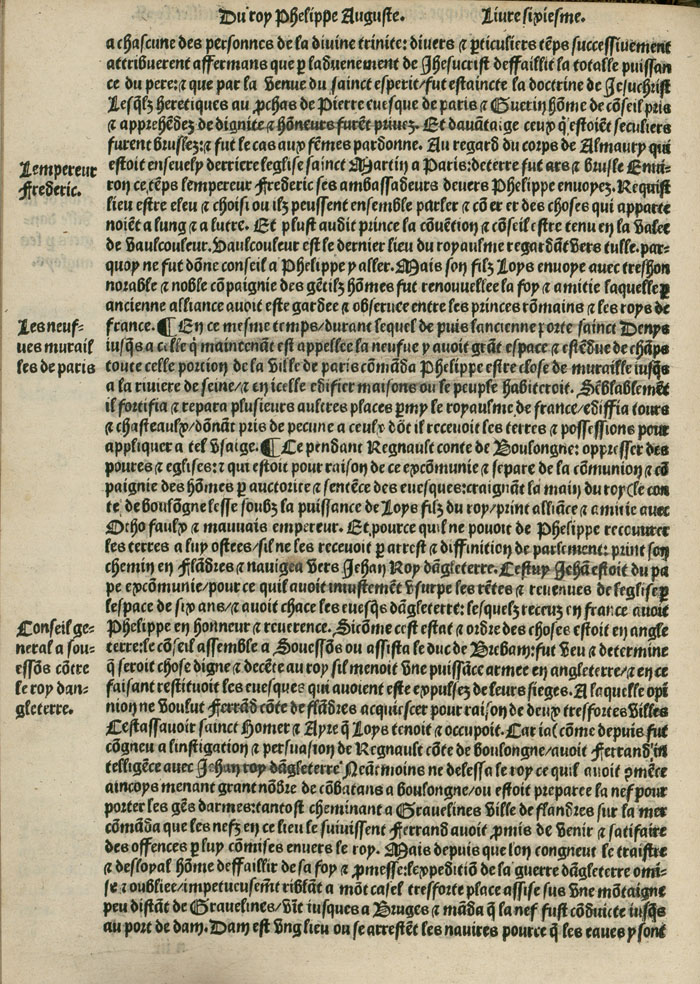 Du roy Phelippe Auguste. Livre sixiesme.
a chascune des personnes de la divine trinite: divers ⁊ p̱ticuliers tēps successivement
attribuerent affermans que p̱ laduenement de Jhesucrist deffaillit la totalle puissan
ce du pere: ⁊ que par la venue du sainct esperit/fut estaincte la doctrine de Jesuchrist
Lesq̄lz heretiques au p̱chas de Pierre euesque de paris ⁊ Guerin hōme de cōseil pris
⁊ apprehēdez de dignite ⁊ hōneurs furēt priuez. Et dauātaige ceux q̄ estoiēt seculiers
furent bruslez: ⁊ fut le cas aux fēmes pardonne. Au regard du corps de Almaury qui
estoit enseuely derriere leglise sainct Martin a Paris: deterre fut ars ⁊ brusle Enui-
Lempereur
Frederic.
ron ce tēps lempereur Frederic ses ambassadeurs deuers Phelippe envoyez. Requist
lieu estre eleu ⁊ choisi ou ilz peussent ensemble parler ⁊ cō er er des choses qui apparte
noiēt a lung ⁊ a lutre. Et plust audit prince la cōuētion ⁊ cōseil estre tenu en la Valee
de Vaulcouleur. Vaulcouleur est le dernier lieu du royaulme regardāt vers tulle. par-
quoy ne fut dōne conseil a Phelippe y aller. Mais son filz Loys envoye avec treshon
norable ⁊ noble cōpaignie des gētilz hōmes fut renouuellee la foy ⁊ amitie laquelle p̱
ancienne alliance avoit este gardee ⁊ obseruee entre les princes rōmains ⁊ les roys de
Les neuf-
ues murail
les de paris
france. ¶ En ce mesme temps/durant lequel de puis lancienne porte sainct Denys
iusq̄s a celle q̄ maintenāt est appellee la neufue y avoit grāt espace ⁊ estēdue de chāps
toute celle portion de la ville de paris cōmāda Phelippe estre close de muraille iusq̄s
a la riviere de seine/⁊ en icelle edifier maisons ou le peuple habiteroit. Sēblablemēt
il fortifia ⁊ repara plusieurs aultres places p̱my le royaulme de france/ediffia tours
⁊ chasteaulx/dōnāt pris de pecune a ceulx dōt il recevoit les terres ⁊ possessions pour
appliquer a tel vsaige. ¶ Ce pendant Regnault conte de Boulongne: oppresser des
poures ⁊ eglises: ⁊ qui estoit pour raison de ce excōmunie ⁊ separe de la cōmunion ⁊ cō
paignie des hōmes p̱ auctorite ⁊ sentēce des euesques: craignāt la main du roy (le con
te de boulōgne lesse soubz la puissance de Loys filz du roy/print alliāce ⁊ amitie avec
Otho faulx ⁊ mauvais empereur. Et pource quil ne pouoit de Phelippe recouurer
les terres a luy ostees/sil ne les recevoit p̱ arrest ⁊ diffinition de parlement: print son
chemin en Flādres ⁊ nauigea vers Jehan Roy dāgleterre. Cestuy Jehā estoit du pa
pe excōmunie/pour ce quil avoit iniustemēt vsurpe les rētes ⁊ reuenues de leglise p̱
lespace de six ans/⁊ avoit chace les euesq̄s dāgleterre: lesquelz receuz en france avoit
Conseil ge-
neral a sou-
essōs cōtre
le roy dan-
gleterre.
Phelippe en honneur ⁊ reuerence. Sicōme cest estat ⁊ ordre des choses estoit en angle
terre: le cōseil assemble a Souessōs ou assista le duc de Brebam: fut veu ⁊ determine
q̄ seroit chose digne ⁊ decēte au roy sil menoit vne puissāce armee en angleterre/⁊ en ce
faisant restituoit les euesques qui avoient este expulsez de leurs sieges. A laquelle opi
nion ne voulut Ferrād cōte de flādres acquiescer pour raison de deux tresfortes villes
Cestassavoir sainct Homer ⁊ Ayre q̄ Loys tenoit ⁊ occupoit. Car ia (cōme depuis fut
cōgneu a linstigation ⁊ persuasion de Regnault cōte de boulongne/avoit Ferrand in
telligēce avec Jehan roy dāgleterre Neātmoins ne delessa le roy ce quil avoit ꝯmēce
aincoys menant grant nōbre de cōbatans a boulongne/ou estoit preparee la nef pour
porter les gēs darmes: tantost cheminant a Gravelines ville de flandres sur la mer
cōmāda que les nefz en ce lieu le suiuissent Ferrand avoit p̱mis de venir ⁊ satifaire
des offences p̱ luy cōmises enuers le roy. Mais depuis que lon congneut le traistre
⁊ desloyal hōme deffaillir de sa foy ⁊ p̱messe: lexpeditiō de la guerre dāgleterre omi-
se ⁊ oubliee/impetueusemēt riblāt a mōt casel tresforte place assise sus vne mōtaigne
peu distāt de Gravelines/vīt iusques a Bruges ⁊ māda q̄ la nef fust cōduicte iusq̄s
au port de dam. Dam est vng lieu ou se arrestēt les navires pource q̄ les eaues y sont